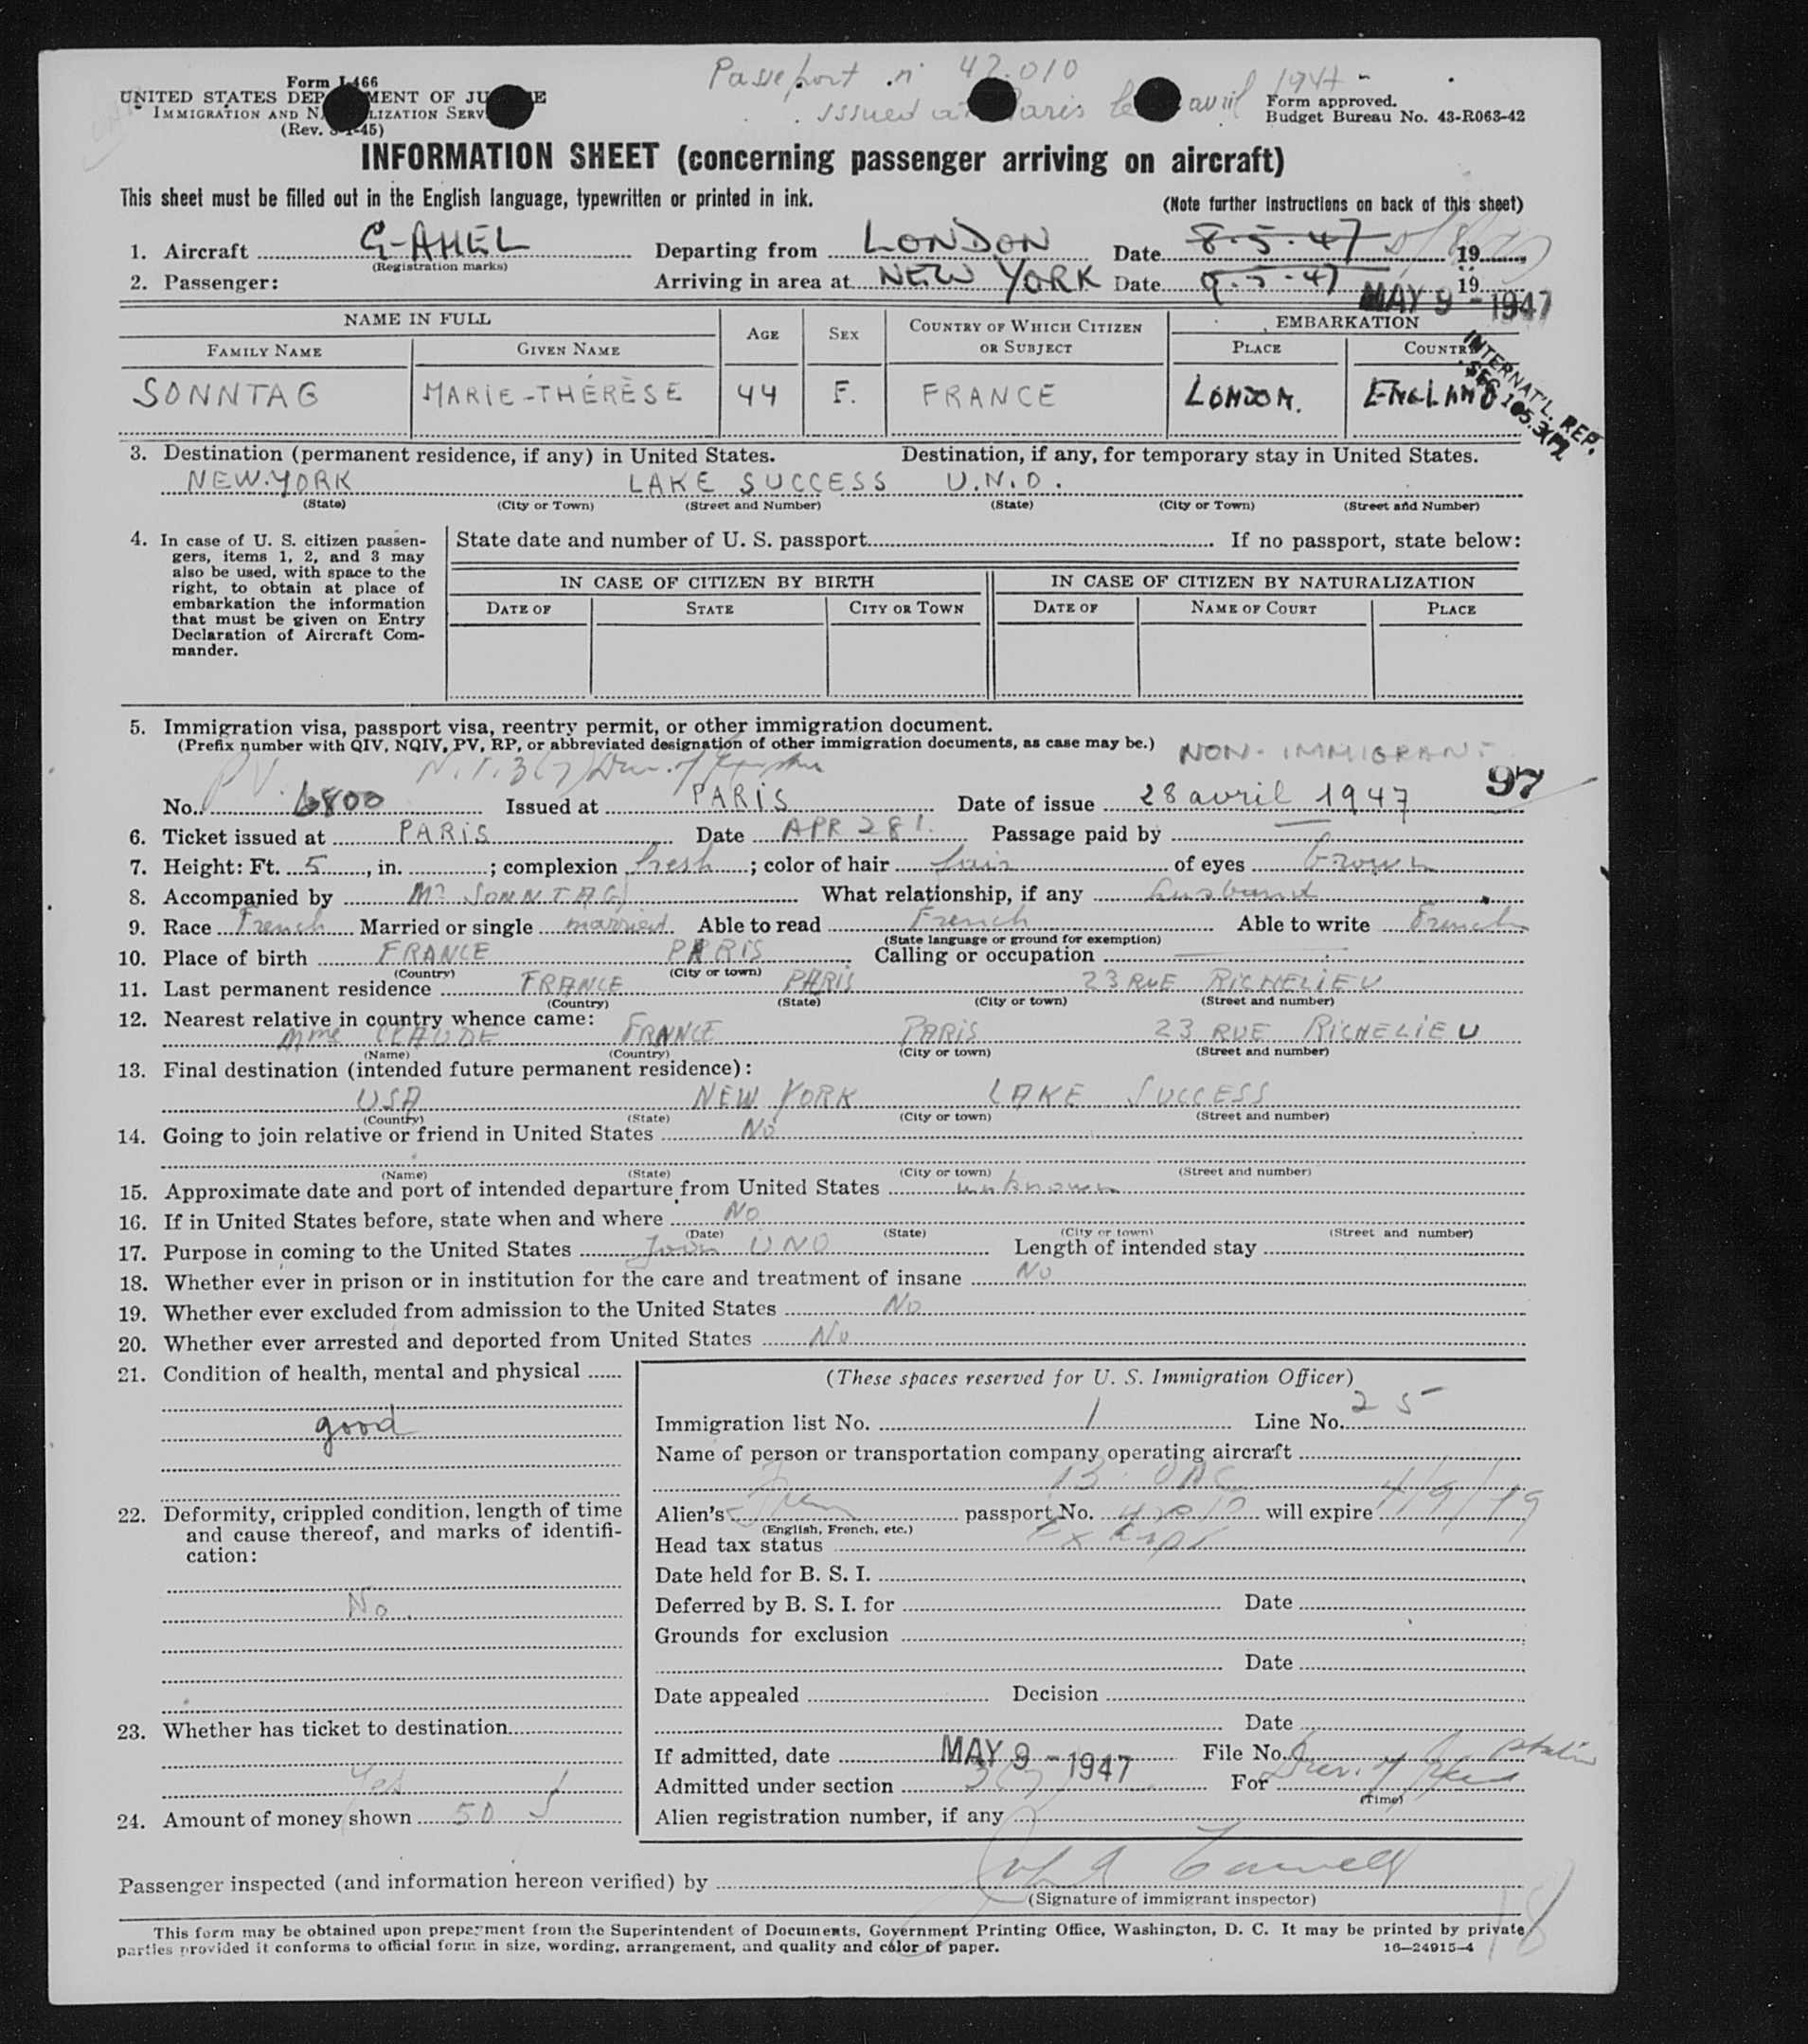 Passeport n° 42.010
issued at Paris le avril 1947
Form I-466
UNITED STATES DEPARTMENT OF JUSTICE
IMMIGRATION AND NATURALIZATION SERVICE
(Rev. 45)
Form approved.
Budget Bureau No. 43-R063-42
INFORMATION SHEET (concerning passenger arriving on aircraft)
This sheet must be filled out in the English language, typewritten or printed in ink.
(Note further instructions on back of this sheet)
1. Aircraft G-AHEL Departing from LONDON Date 8.5.47 19
(Registration marks)
2. Passenger: Arriving in area at NEW YORK Date 9.5.47 19
MAY 9 - 1947
NAME IN FULL AGE SEX COUNTRY OF WHICH CITIZEN OR SUBJECT EMBARKATION
FAMILY NAME GIVEN NAME PLACE COUNTRY
SONNTAG MARIE-THÉRÈSE 44 F. FRANCE LONDON. ENGLAND
INTERNAT'L. REP.
SEC 105.3(P)2
3. Destination (permanent residence, if any) in United States. Destination, if any, for temporary stay in United States.
NEW.YORK LAKE SUCCESS U.N.O.
(State) (City or Town) (Street and Number) (State) (City or Town) (Street and Number)
4. In case of U. S. citizen passengers, items 1, 2, and 3 may also be used, with space to the right, to obtain at place of embarkation the information that must be given on Entry Declaration of Aircraft Commander.
State date and number of U. S. passport If no passport, state below:
IN CASE OF CITIZEN BY BIRTH IN CASE OF CITIZEN BY NATURALIZATION
DATE OF STATE CITY OR TOWN DATE OF NAME OF COURT PLACE
5. Immigration visa, passport visa, reentry permit, or other immigration document.
(Prefix number with QIV, NQIV, PV, RP, or abbreviated designation of other immigration documents, as case may be.)
NON-IMMIGRANT
PV
97
No. 6800 Issued at PARIS Date of issue 28 avril 1947
6. Ticket issued at PARIS Date APR 28 Passage paid by
7. Height: Ft. 5, in. ; complexion fresh; color of hair fair of eyes brown
8. Accompanied by Mr SONNTAG What relationship, if any husband
9. Race French Married or single married Able to read French Able to write French
(State language or ground for exemption)
10. Place of birth FRANCE PARIS Calling or occupation
(Country) (City or town)
11. Last permanent residence FRANCE PARIS 23 RUE RICHELIEU
(Country) (State) (City or town) (Street and number)
12. Nearest relative in country whence came:
Mme CLAUDE FRANCE PARIS 23 RUE RICHELIEU
(Name) (Country) (City or town) (Street and number)
13. Final destination (intended future permanent residence):
USA NEW YORK LAKE SUCCESS
(Country) (State) (City or town) (Street and number)
14. Going to join relative or friend in United States No
(Name) (State) (City or town) (Street and number)
15. Approximate date and port of intended departure from United States unknown
16. If in United States before, state when and where No
(Date) (State) (City or town) (Street and number)
17. Purpose in coming to the United States Join UNO Length of intended stay
18. Whether ever in prison or in institution for the care and treatment of insane No
19. Whether ever excluded from admission to the United States No
20. Whether ever arrested and deported from United States No
21. Condition of health, mental and physical
good
22. Deformity, crippled condition, length of time and cause thereof, and marks of identification:
No.
23. Whether has ticket to destination
Yes
24. Amount of money shown 50
(These spaces reserved for U. S. Immigration Officer)
Immigration list No. 1 Line No. 25
Name of person or transportation company operating aircraft
B.OAC
Alien's passport No. 42010 will expire 4/9/49
(English, French, etc.)
Head tax status
Date held for B. S. I.
Deferred by B. S. I. for Date
Grounds for exclusion
Date
Date appealed Decision
Date
If admitted, date MAY 9 - 1947 File No.
Admitted under section 3(7) For
(Time)
Alien registration number, if any
Passenger inspected (and information hereon verified) by
(Signature of immigrant inspector)
This form may be obtained upon prepayment from the Superintendent of Documents, Government Printing Office, Washington, D. C. It may be printed by private
parties provided it conforms to official form in size, wording, arrangement, and quality and color of paper.
16—24915-4